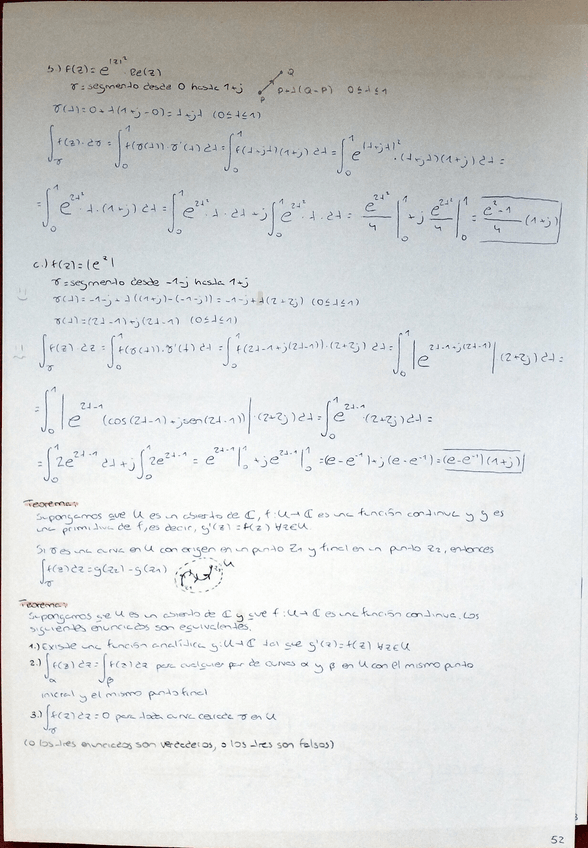 b.) f(z) = e^{|z|²} · Re(z)
γ = segmento desde 0 hasta 1+j P Q P+λ(Q-P) 0≤λ≤1
γ(λ) = 0+λ(1+j-0) = λ+jλ (0≤λ≤1)
∫_γ f(z)·dz = ∫_0^1 f(γ(λ))·γ'(λ) dλ = ∫_0^1 f(λ+jλ)(1+j) dλ = ∫_0^1 e^{|λ+jλ|²}·(λ+jλ)(1+j) dλ =
= ∫_0^1 e^{2λ²}·λ·(1+j) dλ = ∫_0^1 e^{2λ²}·λ·dλ + j∫_0^1 e^{2λ²}·λ·dλ = e^{2λ²}/4 |_0^1 + j e^{2λ²}/4 |_0^1 = (e²-1)/4 (1+j)
c.) f(z) = |e^z|
γ = segmento desde -1-j hasta 1+j
γ(λ) = -1-j+λ((1+j)-(-1-j)) = -1-j+λ(2+2j) (0≤λ≤1)
γ(λ) = (2λ-1)+j(2λ-1) (0≤λ≤1)
∫_γ f(z)·dz = ∫_0^1 f(γ(λ))·γ'(λ) dλ = ∫_0^1 f(2λ-1+j(2λ-1))·(2+2j) dλ = ∫_0^1 |e^{2λ-1+j(2λ-1)}|(2+2j) dλ =
= ∫_0^1 |e^{2λ-1}(cos(2λ-1)+jsen(2λ-1))|·(2+2j) dλ = ∫_0^1 e^{2λ-1}·(2+2j) dλ =
= ∫_0^1 2e^{2λ-1} dλ + j∫_0^1 2e^{2λ-1} = e^{2λ-1}|_0^1 + je^{2λ-1}|_0^1 = (e-e^{-1})+j(e-e^{-1}) = (e-e^{-1})(1+j)
Teorema:
Supongamos que U es un abierto de ℂ, f: U→ℂ es una función continua y g es
una primitiva de f, es decir, g'(z) = f(z) ∀z∈U
Si γ es una curva en U con origen en un punto z₁ y final en un punto z₂, entonces
∫_γ f(z) dz = g(z₂) - g(z₁) U
Teorema:
Supongamos que U es un abierto de ℂ y que f: U→ℂ es una función continua. Los
siguientes enunciados son equivalentes.
1.) Existe una función analítica g: U→ℂ tal que g'(z) = f(z) ∀z∈U
2.) ∫_α f(z) dz = ∫_β f(z) dz para cualquier par de curvas α y β en U con el mismo punto
inicial y el mismo punto final
3.) ∫_γ f(z) dz = 0 para toda curva cerrada γ en U
(o los tres enunciados son verdaderos, o los tres son falsos)
52